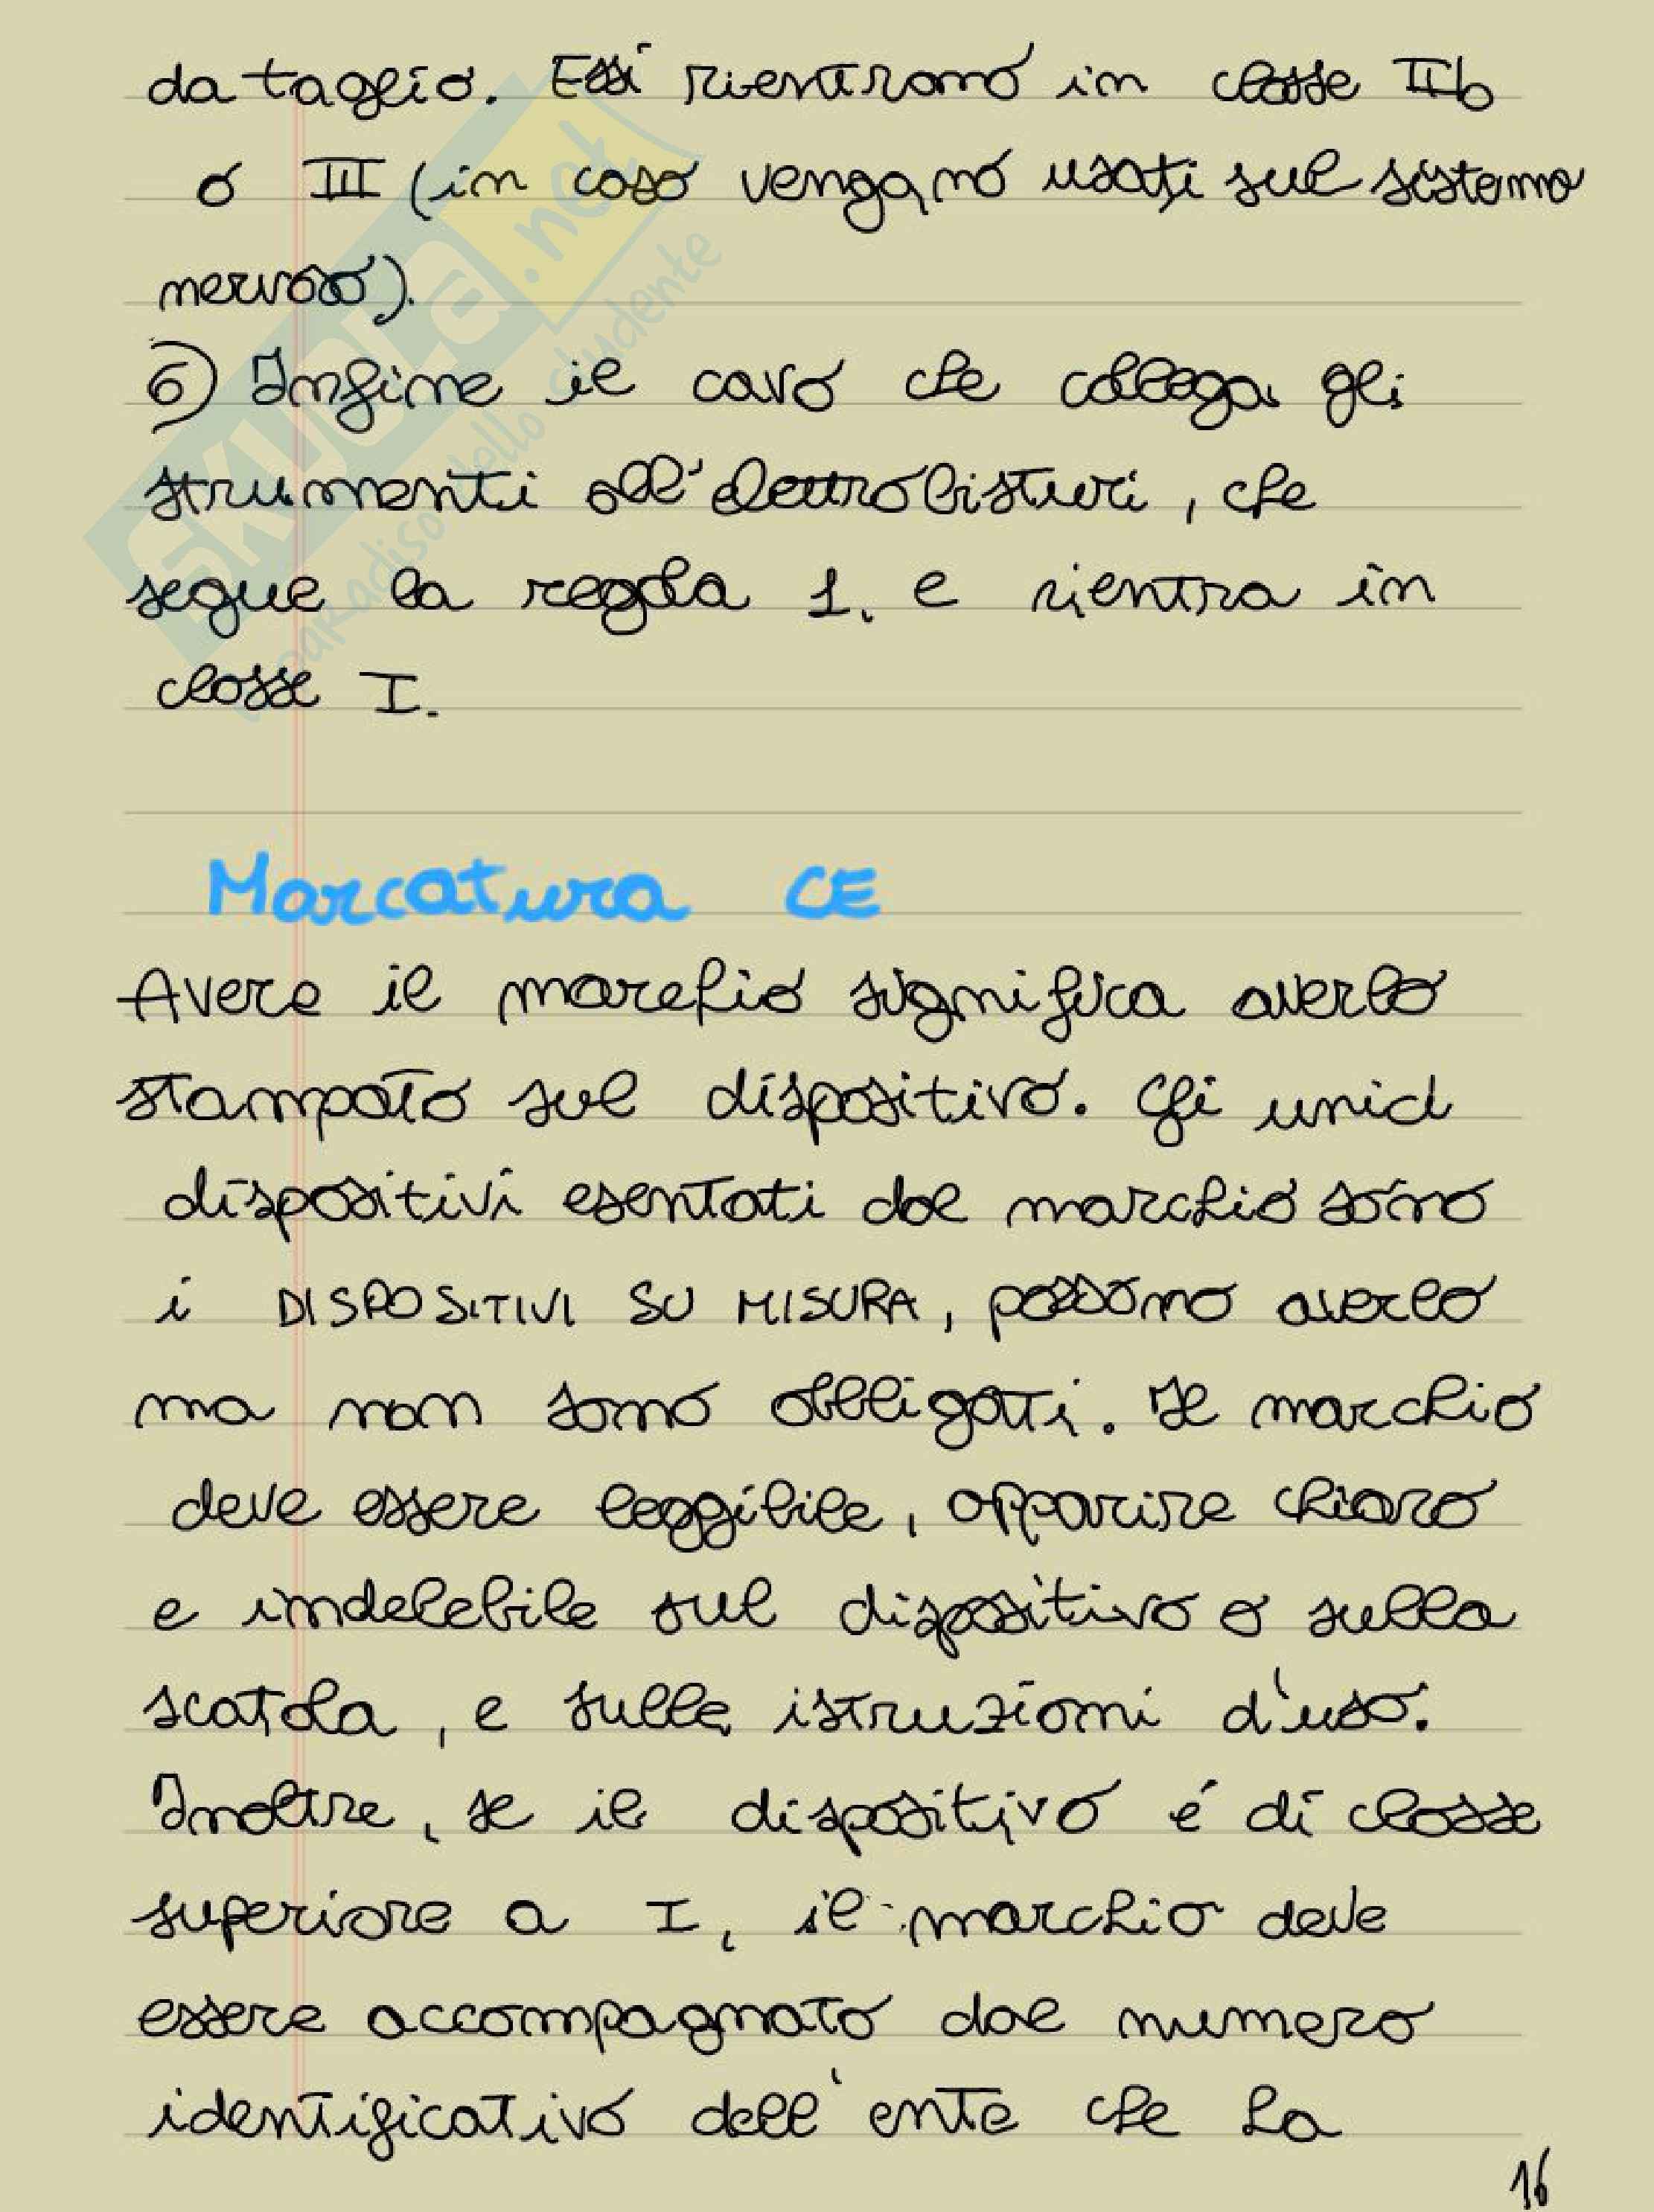 da taglio. Essi rientrano in classe IIb
o III (in caso vengano usati sul sistema
nervoso).
6) Infine il cavo che collega gli
strumenti all'elettrobisturi, che
segue la regola 1. e rientra in
classe I.
Marcatura CE
Avere il marchio significa averlo
stampato sul dispositivo. Gli unici
dispositivi esentati dal marchio sono
i DISPOSITIVI SU MISURA, possono averlo
ma non sono obbligati. Il marchio
deve essere leggibile, apparire chiaro
e indelebile sul dispositivo o sulla
scatola, e sulle istruzioni d'uso.
Inoltre, se il dispositivo é di classe
superiore a I, il marchio deve
essere accompagnato dal numero
identificativo dell'ente che ha
16
SKUOLA.net
il paradiso dello studente